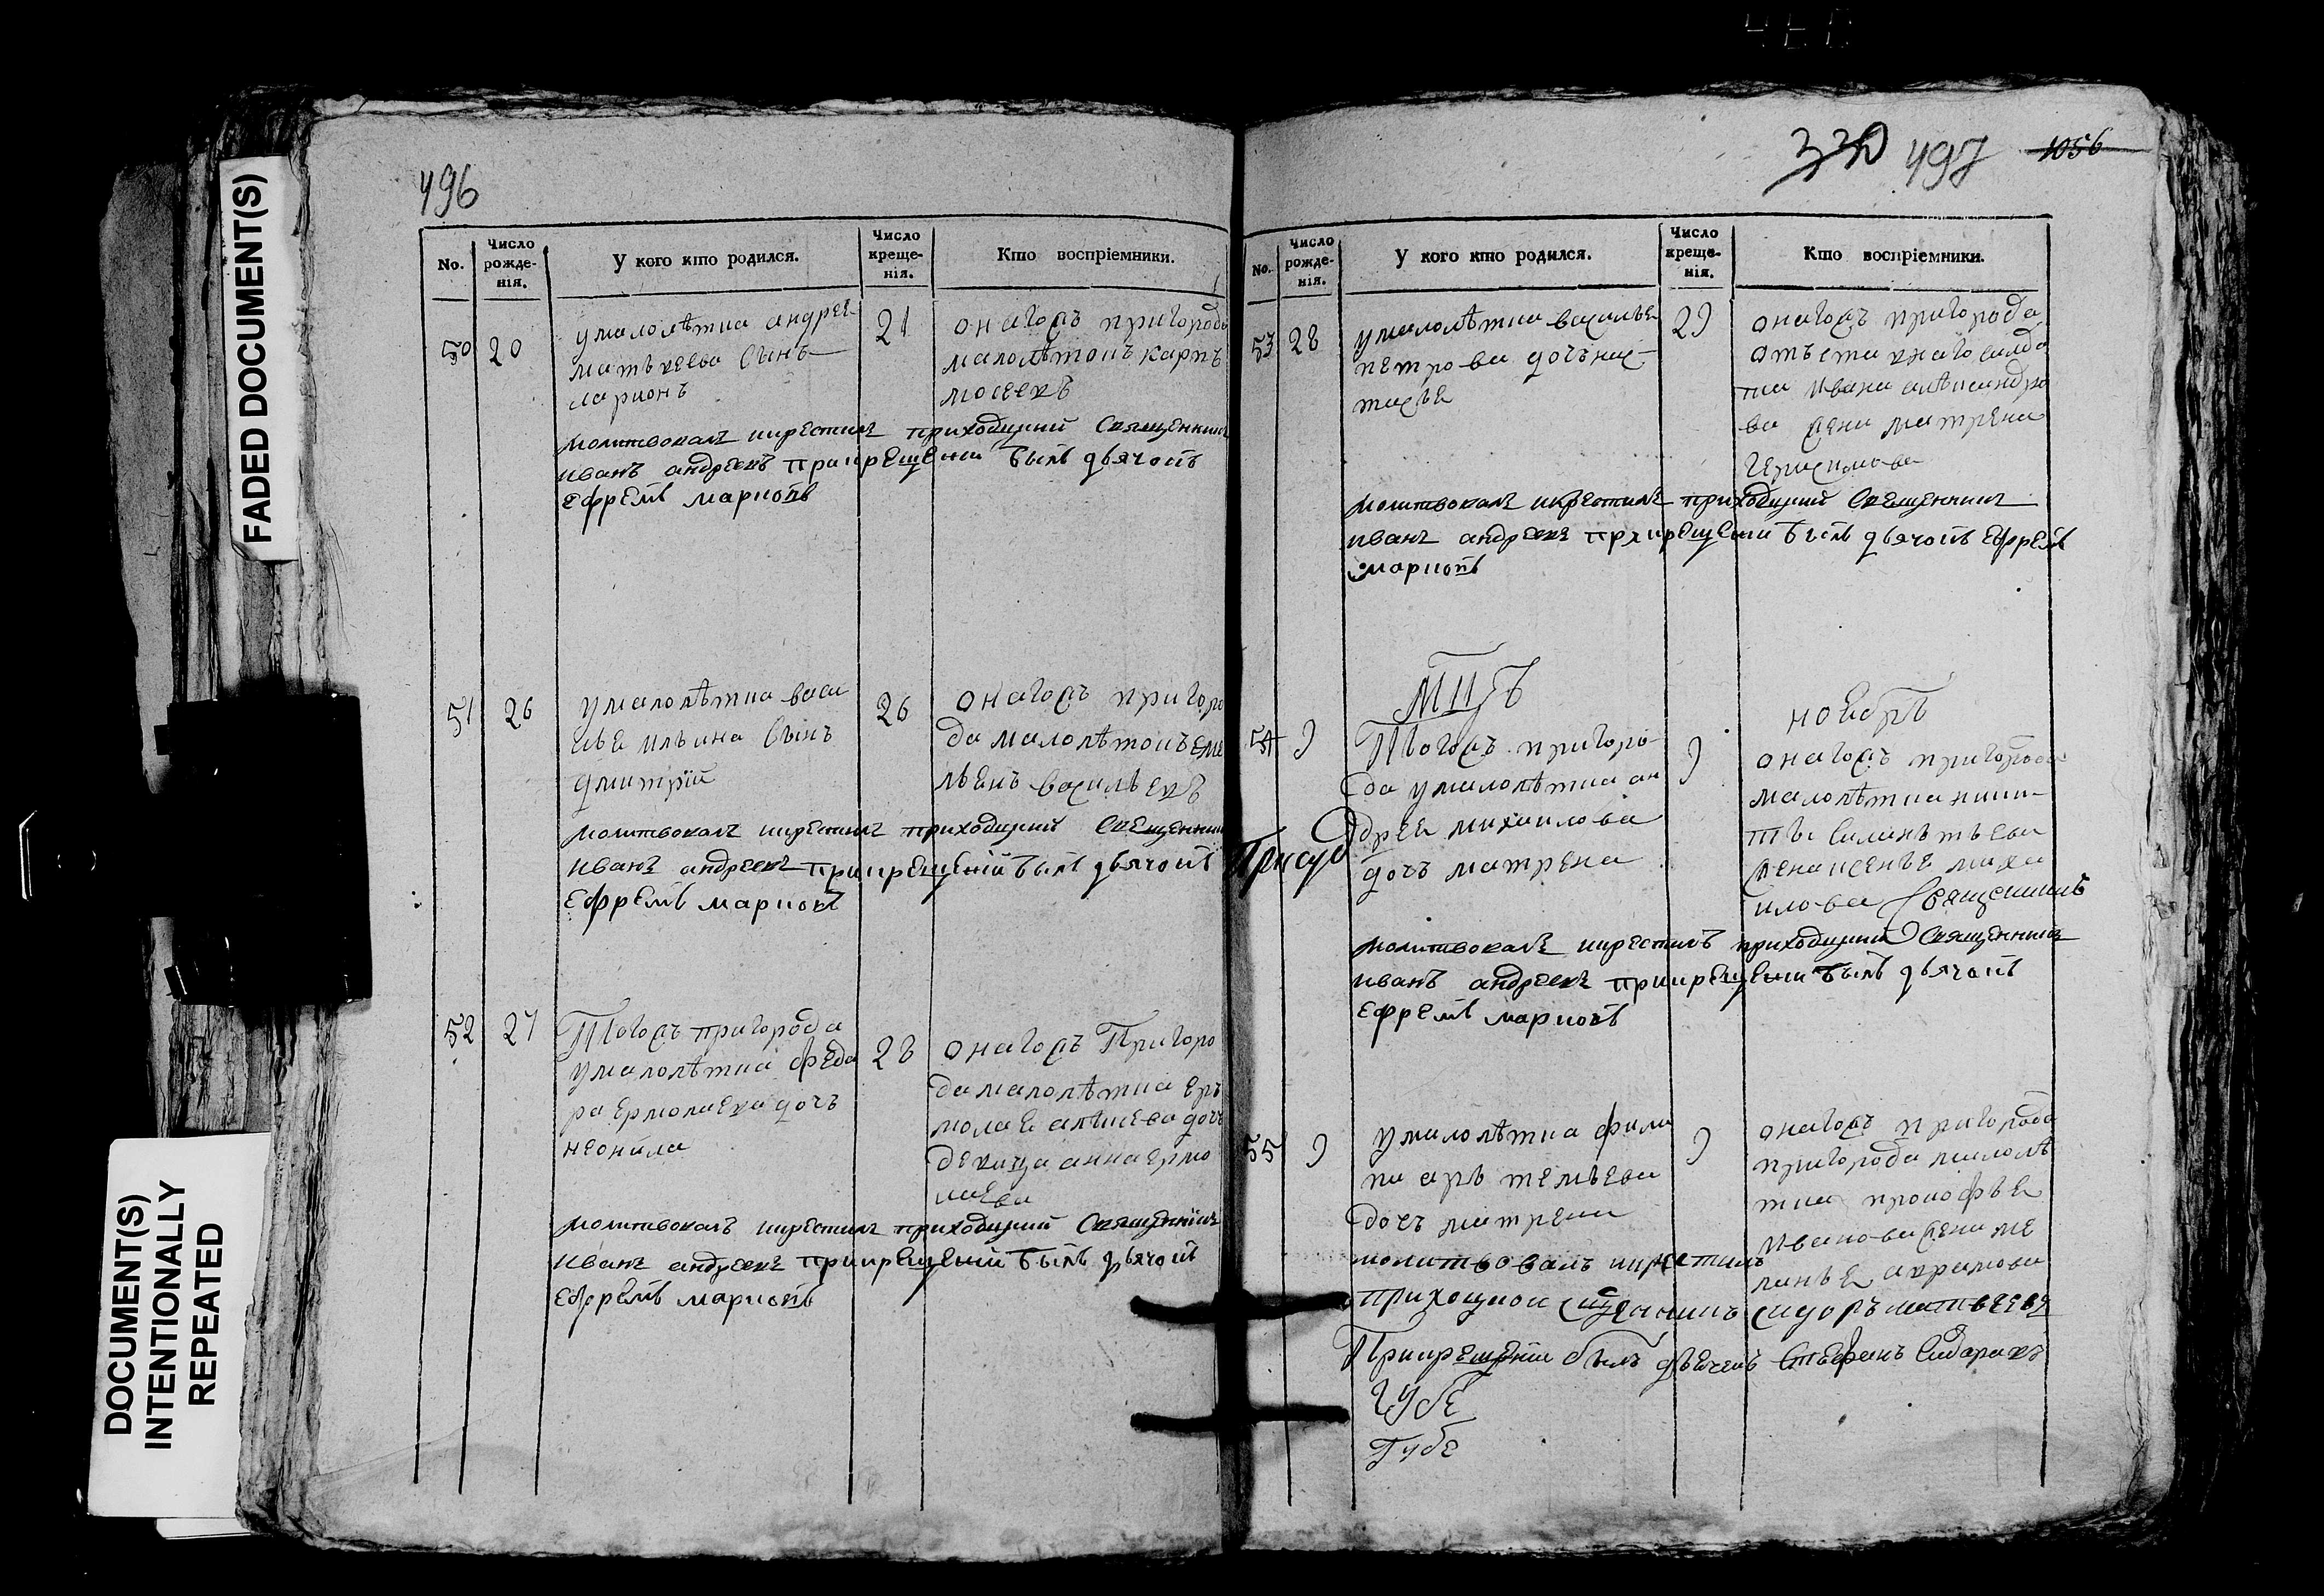 FADED DOCUMENT(S)
DOCUMENT(S)
INTENTIONALLY
REPEATED
496
No.
Число рожденія.
У кого кто родился.
Число крещенія.
Кто воспріемники.
50 20
умалолѣтна андрее
матвеева Сынъ
ларионъ
21
онагожъ пригорода
малолѣтокъ карпъ
мосеевъ
молитвовалъ икрестилъ приходцкий Священникъ
иванъ андреевъ прикрещении былъ дьячокъ
ефремъ марковъ
51 26
умалолѣтна васи
лья ильина Сынъ
дмитрiй
26
онагожъ пригоро
да малолѣтокъ еме
льянъ васильевъ
молитвовалъ икрестилъ приходцкий Свещенник
иванъ андреевъ прикрещений былъ дьячокъ
ефремъ марковъ
52 27
Тогожъ пригорода
умалолѣтна федо
ра ермолаева дочь
неонила
28
онагожъ Пригоро
да малолѣтна ер
мола алѣксеева дочь
девица анна ермо
лаева
молитвовалъ икрестилъ приходцкий Священникъ
иванъ андреевъ прикрещений былъ дьячокъ
ефремъ марковъ
330 497 1056
No.
Число рожденія.
У кого кто родился.
Число крещенія.
Кто воспріемники.
53 28
умалолѣтна василье
петрова дочь нас
тасье
29
онагожъ пригорода
отъставнаго салда
та ивана алѣксандро
ва жена матрена
герасимова
молитвовалъ икрестилъ приходцкий Свещенникъ
иванъ андреевъ прикрещении былъ дьячокъ Ефремъ
марковъ
МЦЪ
ноЯбрЪ
54 9
Тогожъ пригоро
да умалолѣтна ан
дрея михаилова
дочь матрена
9
онагожъ пригорода
малолѣтна ники
ты
жена ксенья миха
илова Священникъ
молитвовалъ икрестилъ приходцкий Священникъ
иванъ андреевъ прикрещении былъ дьячокъ
ефремъ марковъ
55 9
умалолѣтна фили
па артемьева
дочь матрена
9
онагожъ пригорода
пригорода малолѣ
тна прокофья
иванова жена ме
ланья аврамова
молитвовалъ икрестилъ
приходцкои сщенникъ сидоръ матвеевъ
Прикрещении былъ дьячекъ Стефанъ Сидаровъ
губе
Губе